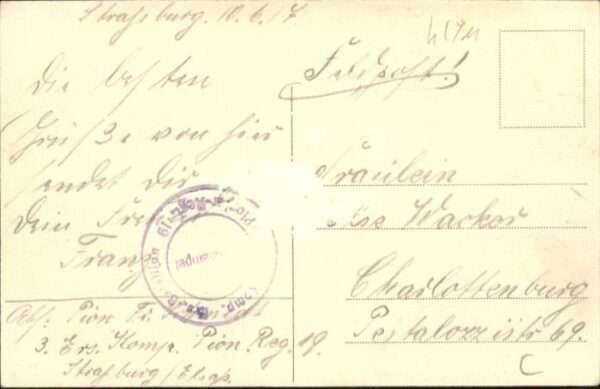 Straßburg. 10.6.17
Feldpost!
Die besten
Grüße von hier
sendet Dir
Dein
Franz
Abs: Pion. Fr.
3. Ers. Komp. Pion Reg. 19.
Straßburg/Elsaß.
Fräulein
Wacker
Charlottenburg
Pestalozzistr 69.
C